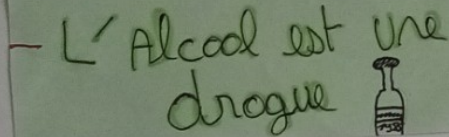 - L' Alcool est une
drogue